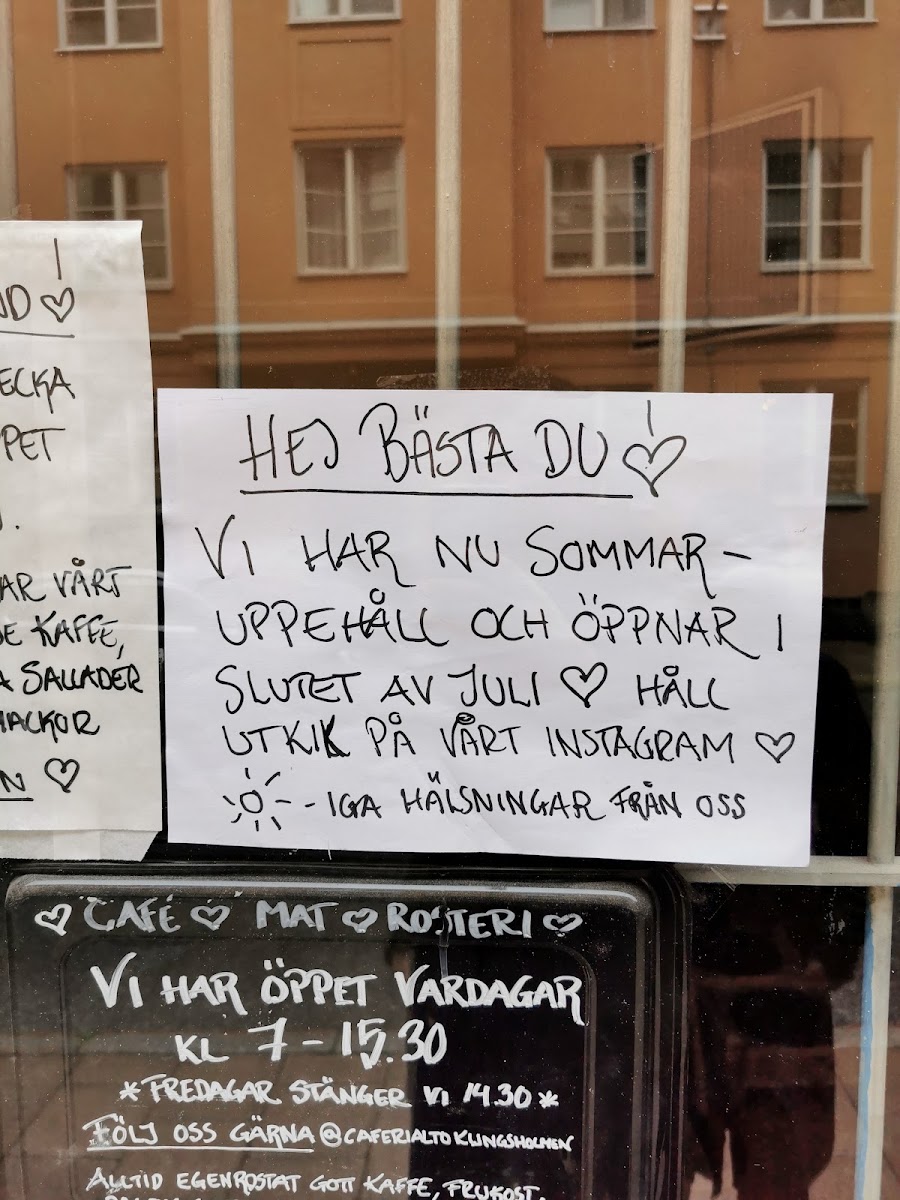 ND ♡
ECKA
PET
AR VÅRT
KAFFE,
SALLADER
MACKOR
N ♡
HEJ BÄSTA DU ♡
VI HAR NU SOMMAR-
UPPEHÅLL OCH ÖPPNAR I
SLUTET AV JULI ♡ HÅLL
UTKIK PÅ VÅRT INSTAGRAM ♡
☼--IGA HÄLSNINGAR FRÅN OSS
♡ CAFÉ ♡ MAT ♡ ROSTERI ♡
VI HAR ÖPPET VARDAGAR
KL 7-15.30
*FREDAGAR STÄNGER VI 14.30*
FÖLJ OSS GÄRNA @CAFERIALTOKUNGSHOLMEN
ALLTID EGENROSTAT GOTT KAFFE, FRUKOST,